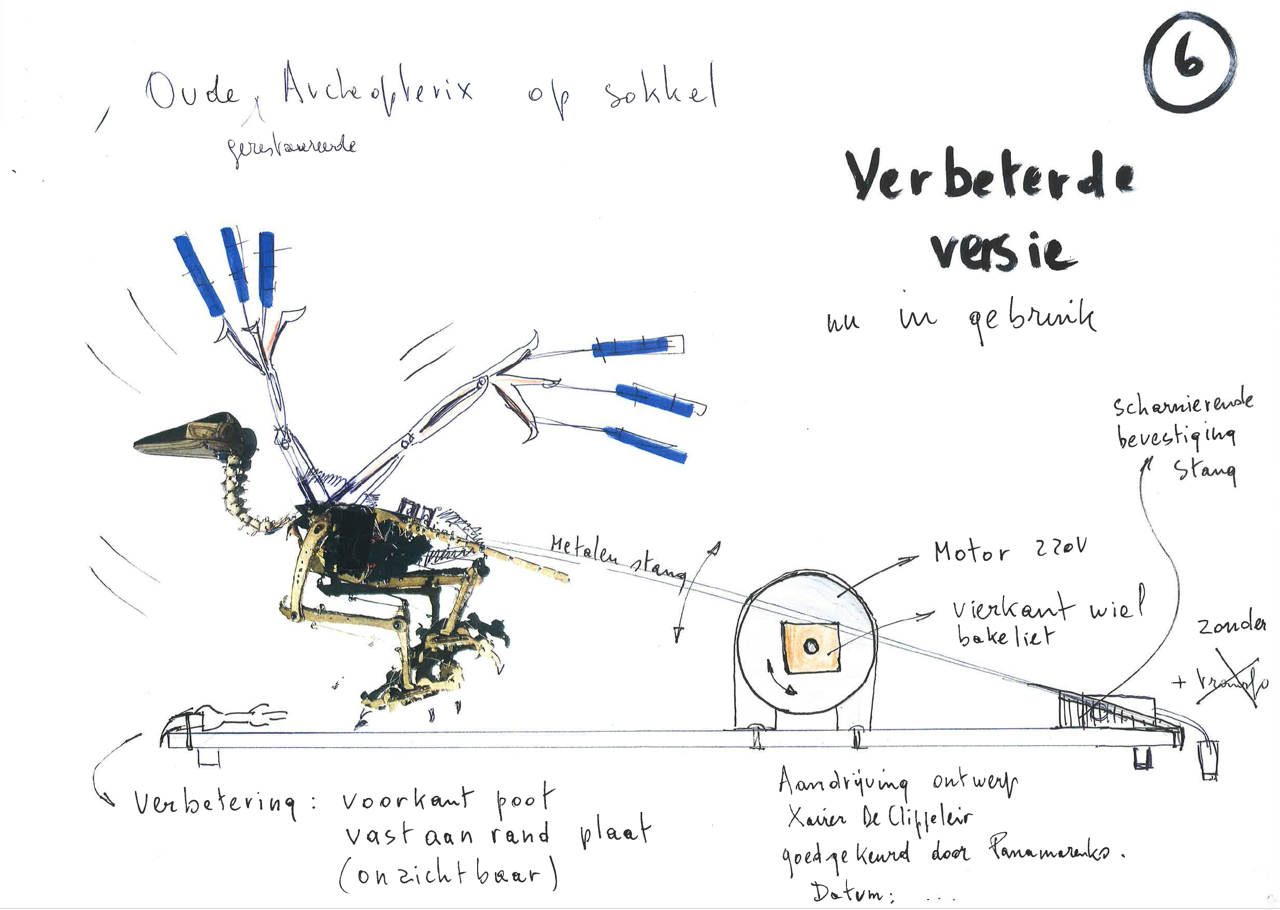 6
Oude Archeopterix op sokkel
gerestaureerde
Verbeterde
versie
nu in gebruik
scharnierende
bevestiging
stang
Metalen stang
Motor 220V
vierkant wiel
bakeliet
zonder
+ transfo
Verbetering: voorkant poot
vast aan rand plaat
(onzichtbaar)
Aandrijving ontwerp
Xavier De Clippeleir
goedgekeurd door Panamarenko.
Datum: ...